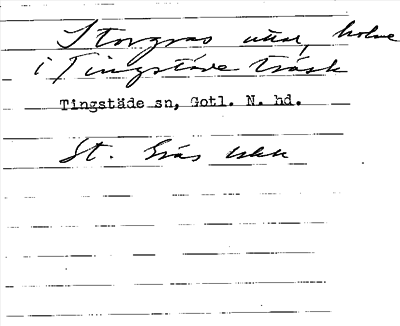 Storgras ..., holme
i Tingstäde träsk
Tingstäde sn, Gotl. N. hd.
St. Gräs